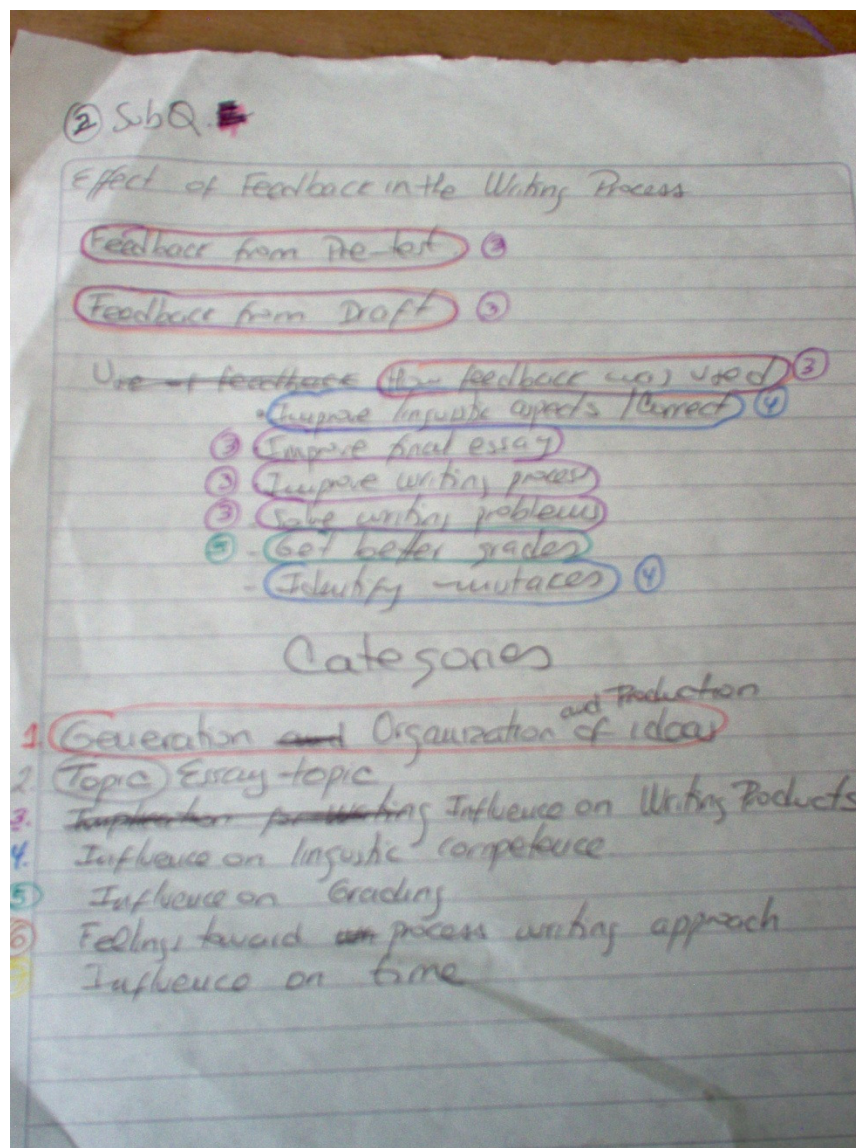 ② SubQ.
Effect of Feedback in the Writing Process
Feedback from Pre-test. ③
Feedback from Draft ③
Use of feedback How feedback was used ③
Improve linguistic aspects / Correct ④
③ Improve final essay
③ Improve writing process
③ Solve writing problems
⑤ - Get better grades
- Identify mistaces ④
Categories
and Production
1. Generation and Organization of ideas
2. Topic Essay topic
3. Implication for writing Influence on Writing Products
4. Influence on lingustic competence
⑤ Influence on Grading
⑥ Feelings toward process writing approach
Influence on time